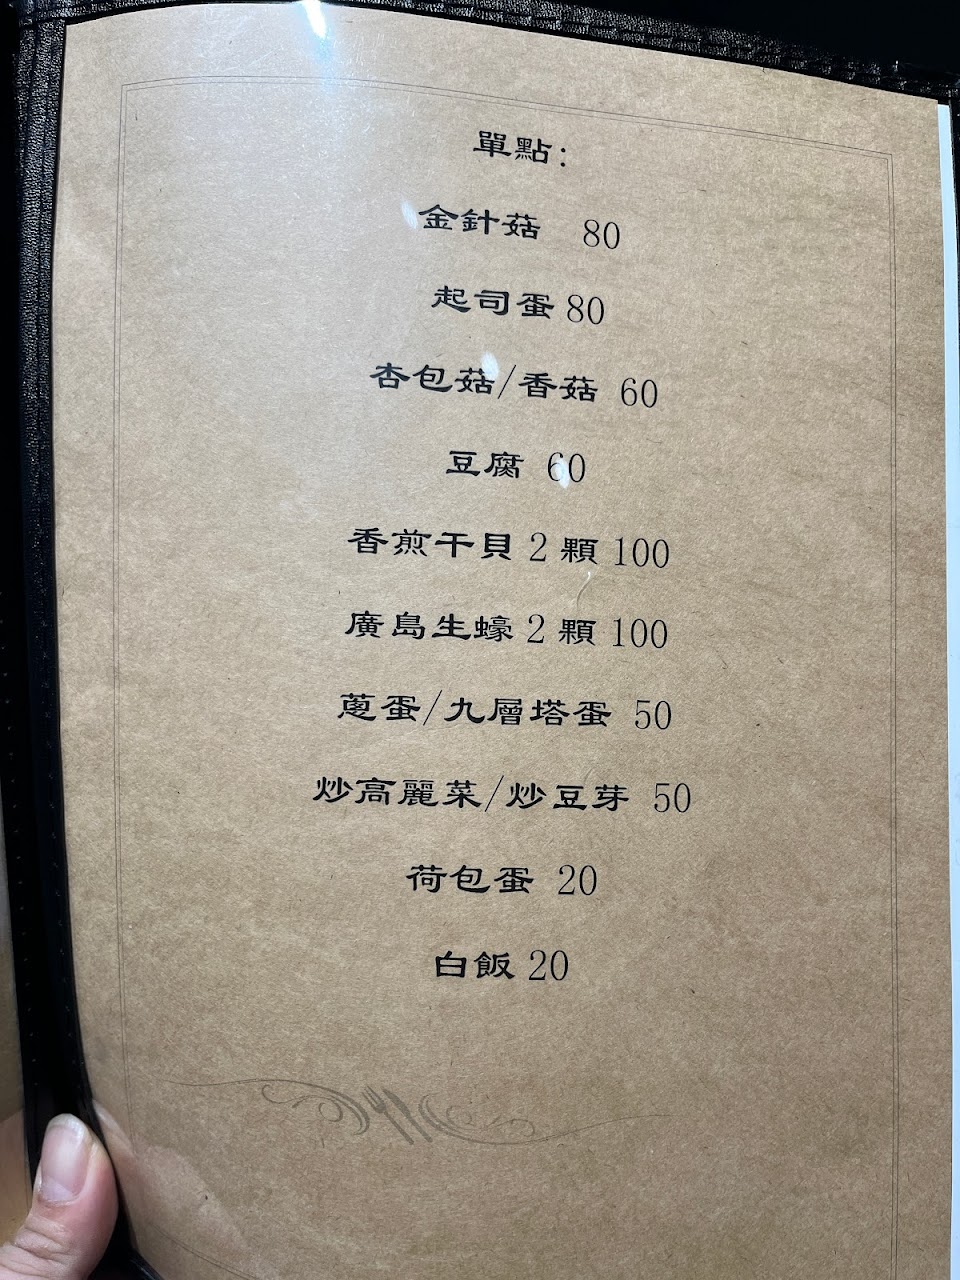 單點：
金針菇 80
起司蛋 80
杏包菇/香菇 60
豆腐 60
香煎干貝 2 顆 100
廣島生蠔 2 顆 100
蔥蛋/九層塔蛋 50
炒高麗菜/炒豆芽 50
荷包蛋 20
白飯 20